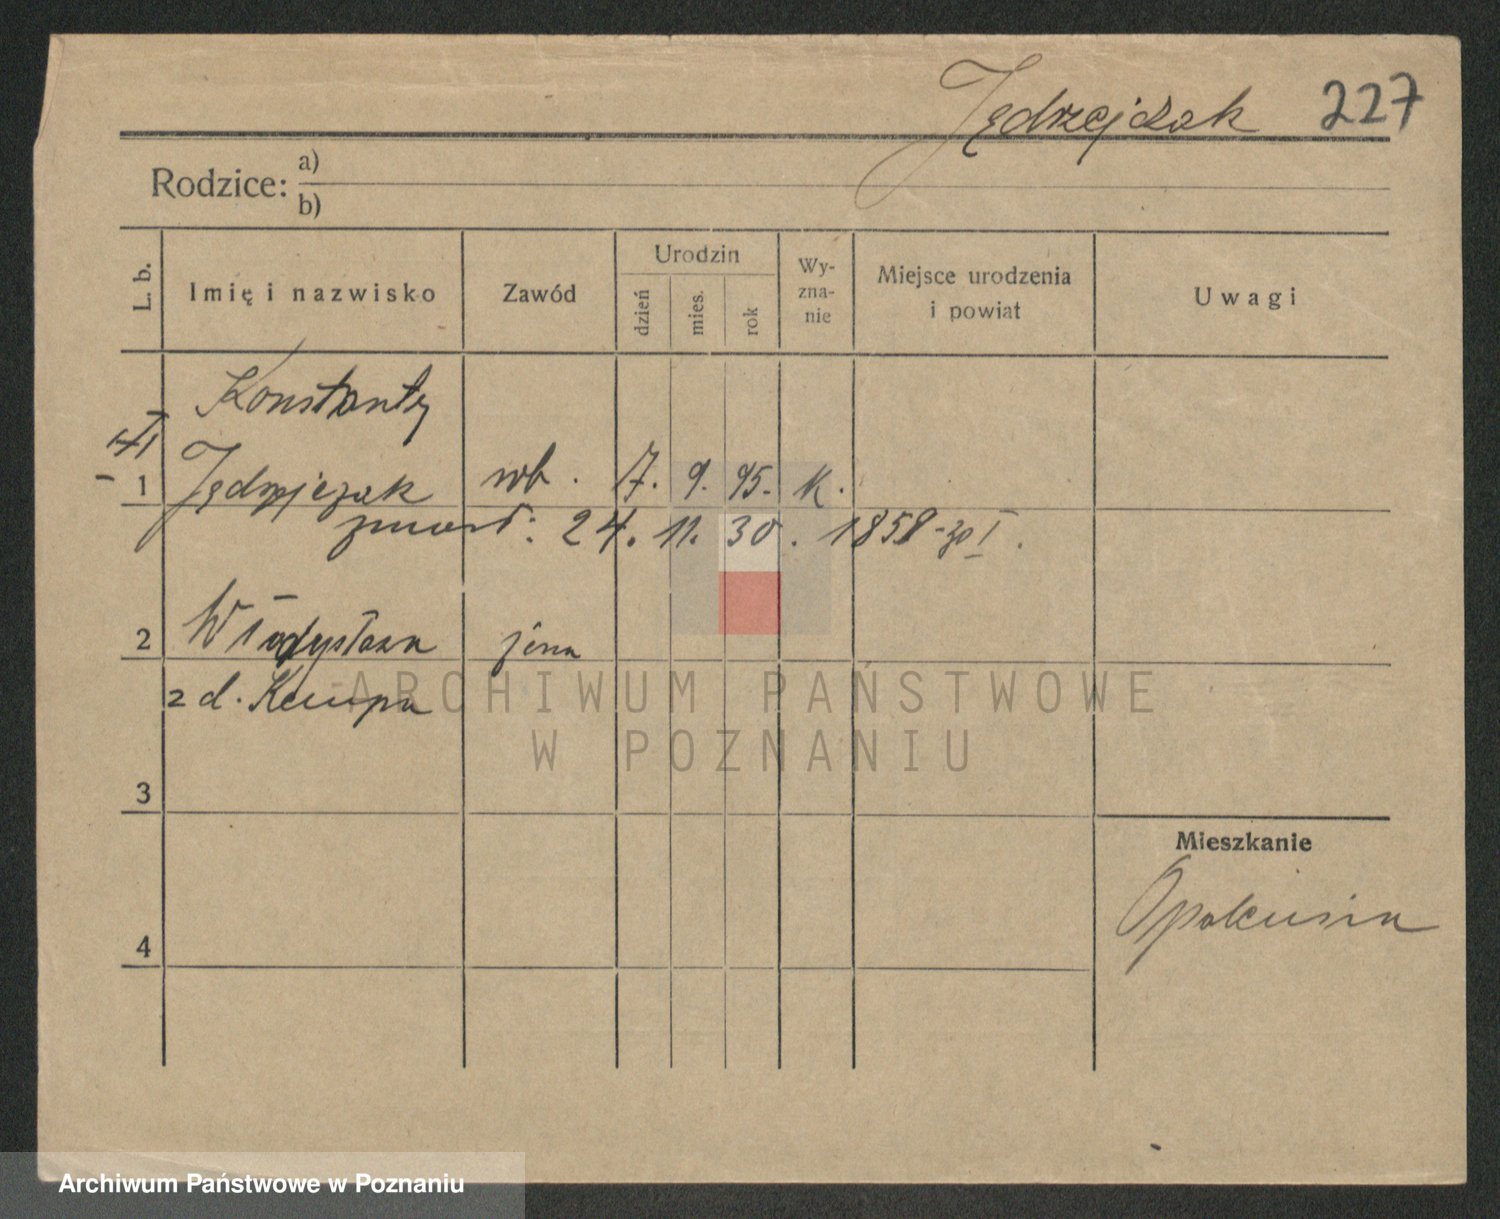 Jędrzejczak 227
Rodzice: a)
b)
L. b.
Imię i nazwisko
Zawód
Urodzin
dzień
mies.
rok
Wy-
zna-
nie
Miejsce urodzenia
i powiat
Uwagi
Konstanty
1 Jędrzejczak wb. 7. 9. 95. k.
zmarł: 24. 11. 30. 1858-30 I.
2 Władysława żona
z d. Kempa
ARCHIWUM PAŃSTWOWE
W POZNANIU
3
Mieszkanie
4
Archiwum Państwowe w Poznaniu